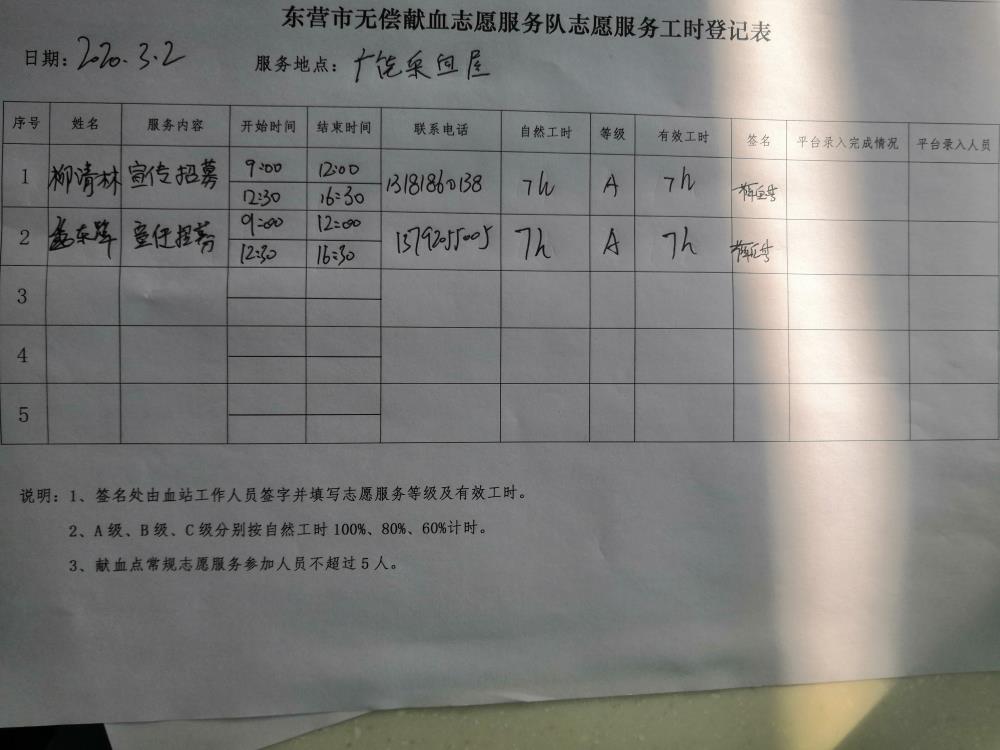 东营市无偿献血志愿服务队志愿服务工时登记表
日期：2020.3.2 服务地点：广饶采血屋
序号 姓名 服务内容 开始时间 结束时间 联系电话 自然工时 等级 有效工时 签名 平台录入完成情况 平台录入人员
1 柳清林 宣传招募 9:00 12:00 13181860138 7h A 7h
12:30 16:30
2 东 宣传招募 9:00 12:00 13792055005 7h A 7h
12:30 16:30
3
4
5
说明：1、签名处由血站工作人员签字并填写志愿服务等级及有效工时。
2、A级、B级、C级分别按自然工时100%、80%、60%计时。
3、献血点常规志愿服务参加人员不超过5人。